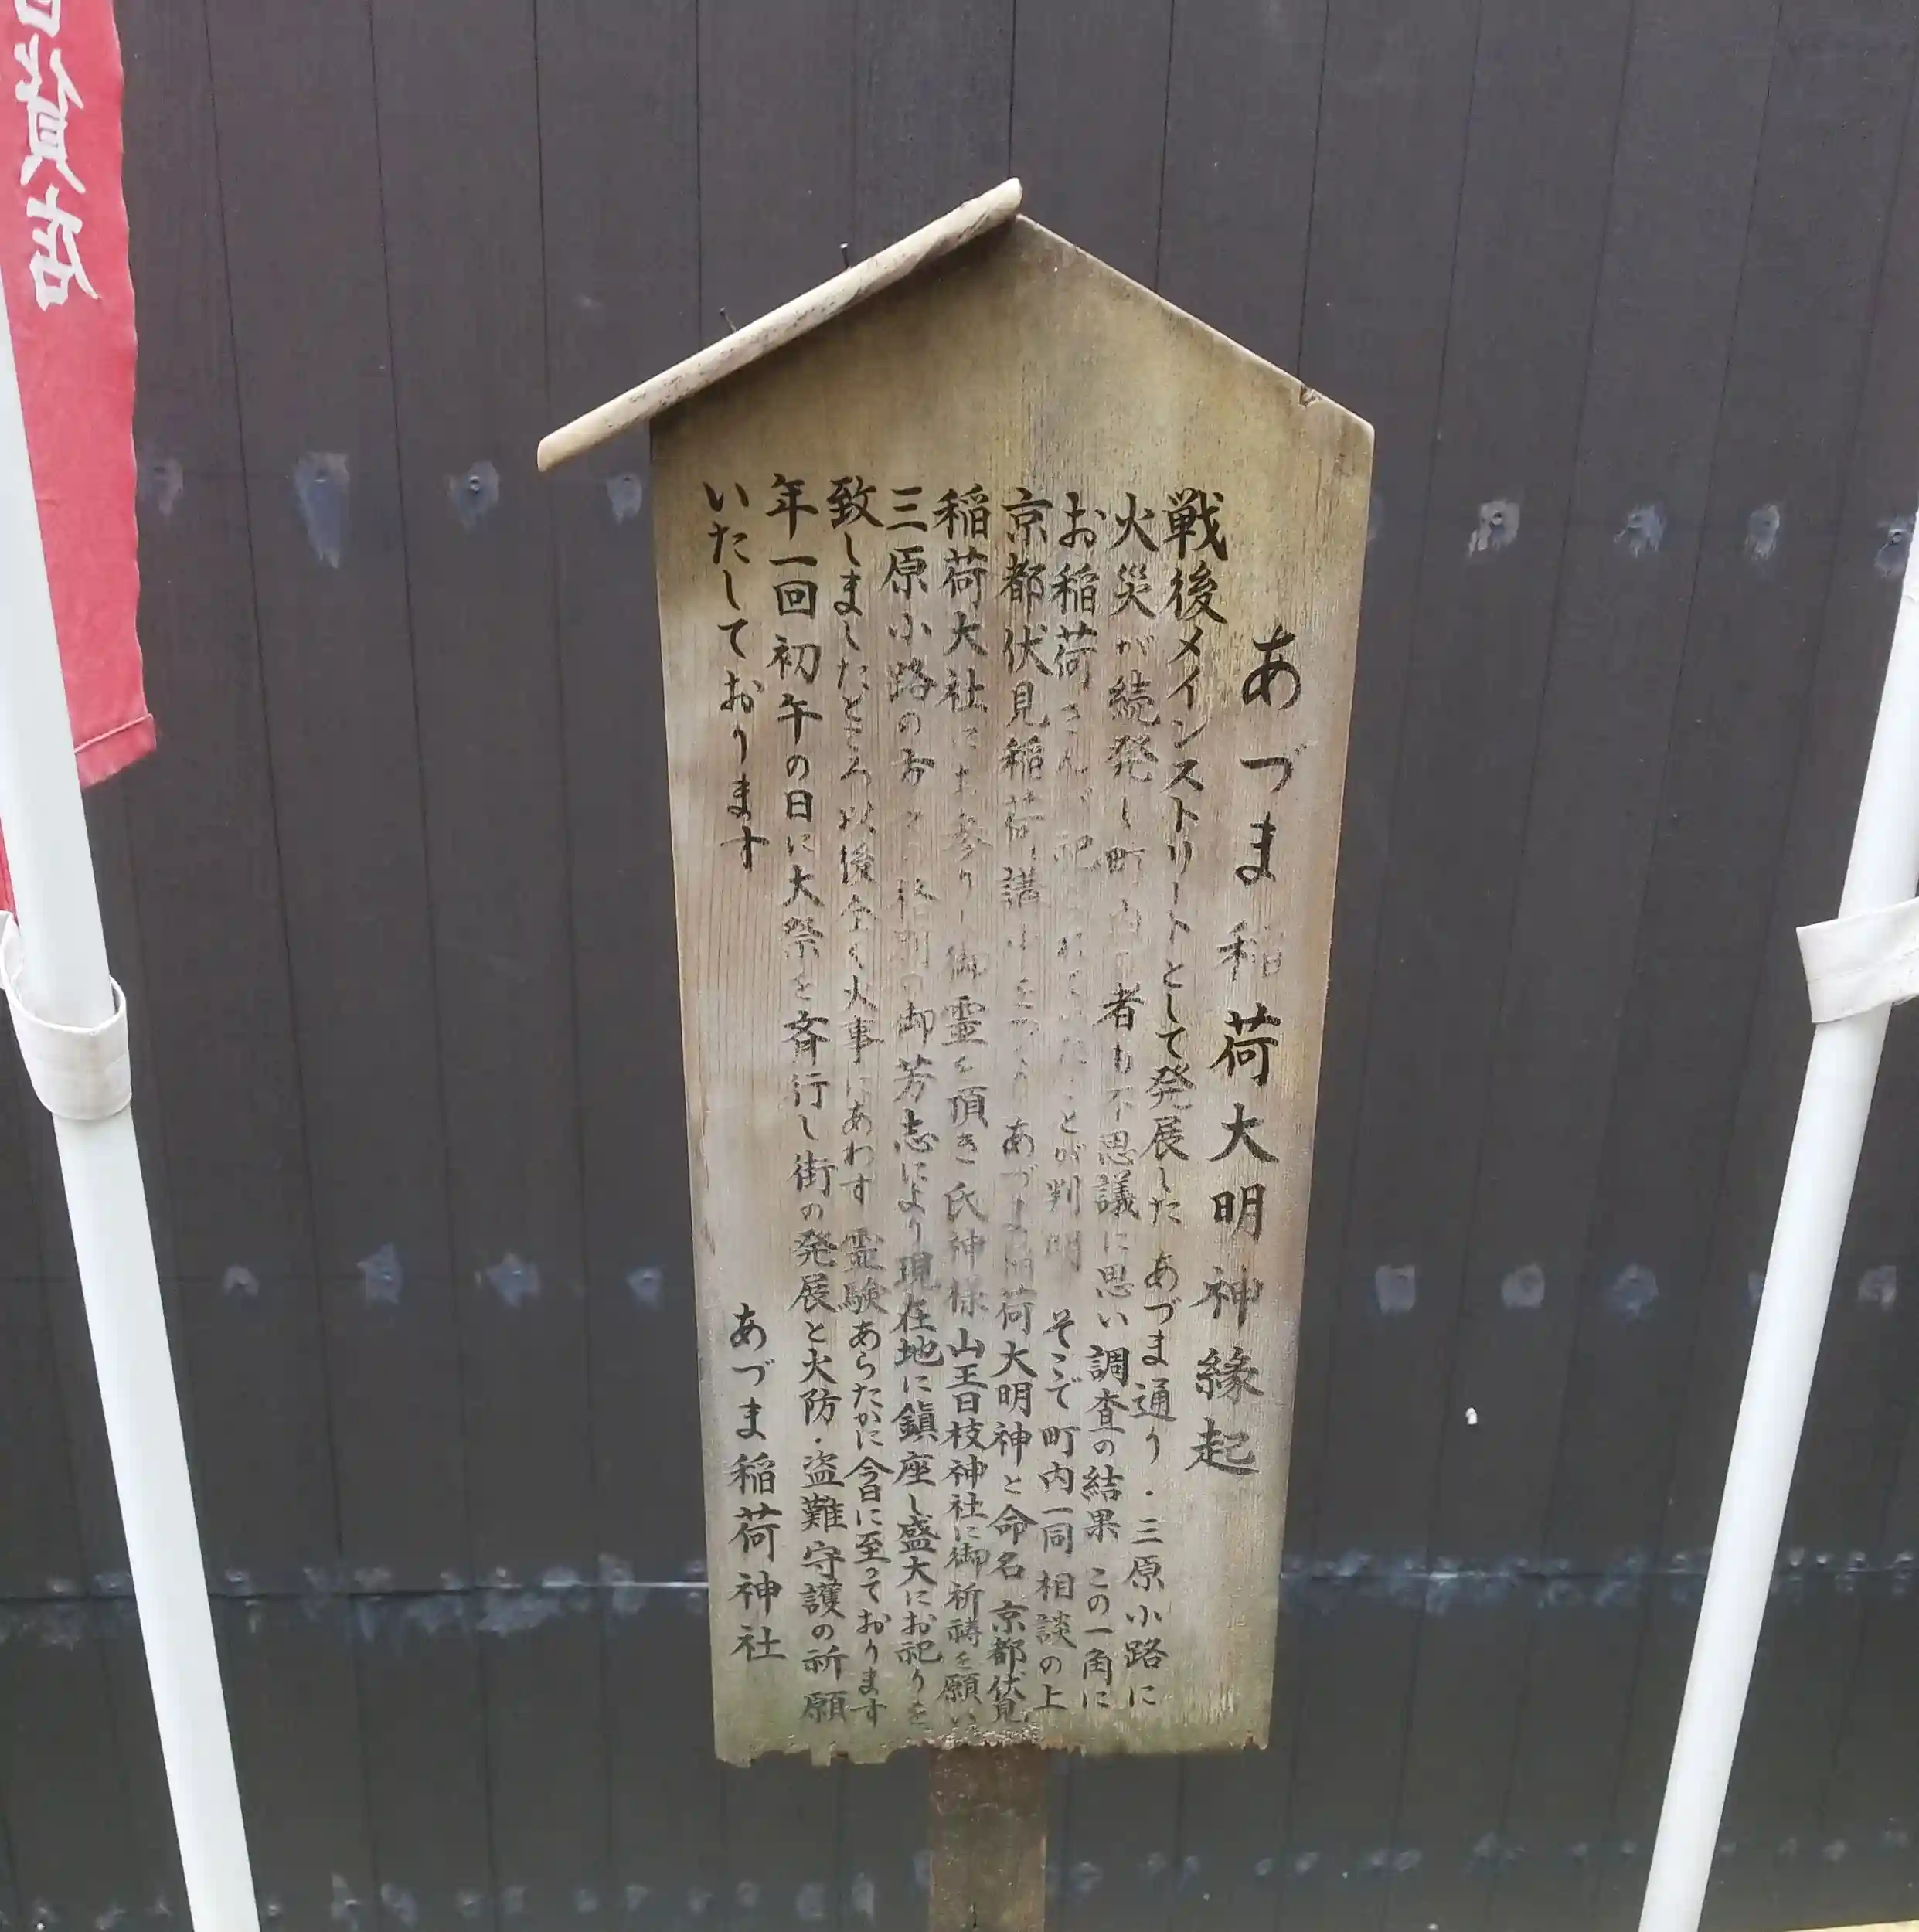 あづま稲荷大明神縁起
戦後メインストリートとして発展した あづま通り・三原小路に
火災が続発し町内の者も不思議に思い調査の結果 この一角に
お稲荷さんが祀られていたことが判明 そこで町内一同相談の上
京都伏見稲荷講中をつくり あづま稲荷大明神と命名 京都伏見
稲荷大社にお参りし御霊を頂き氏神様山王日枝神社に御祈祷を願い
三原小路の方々の格別の御芳志により現在地に鎮座し盛大にお祀りを
致しましたところ以後全く火事にあわず霊験あらたかに今日に至っております
年一回初午の日に大祭を斉行し街の発展と火防・盗難守護の祈願
いたしております
あづま稲荷神社
貨店